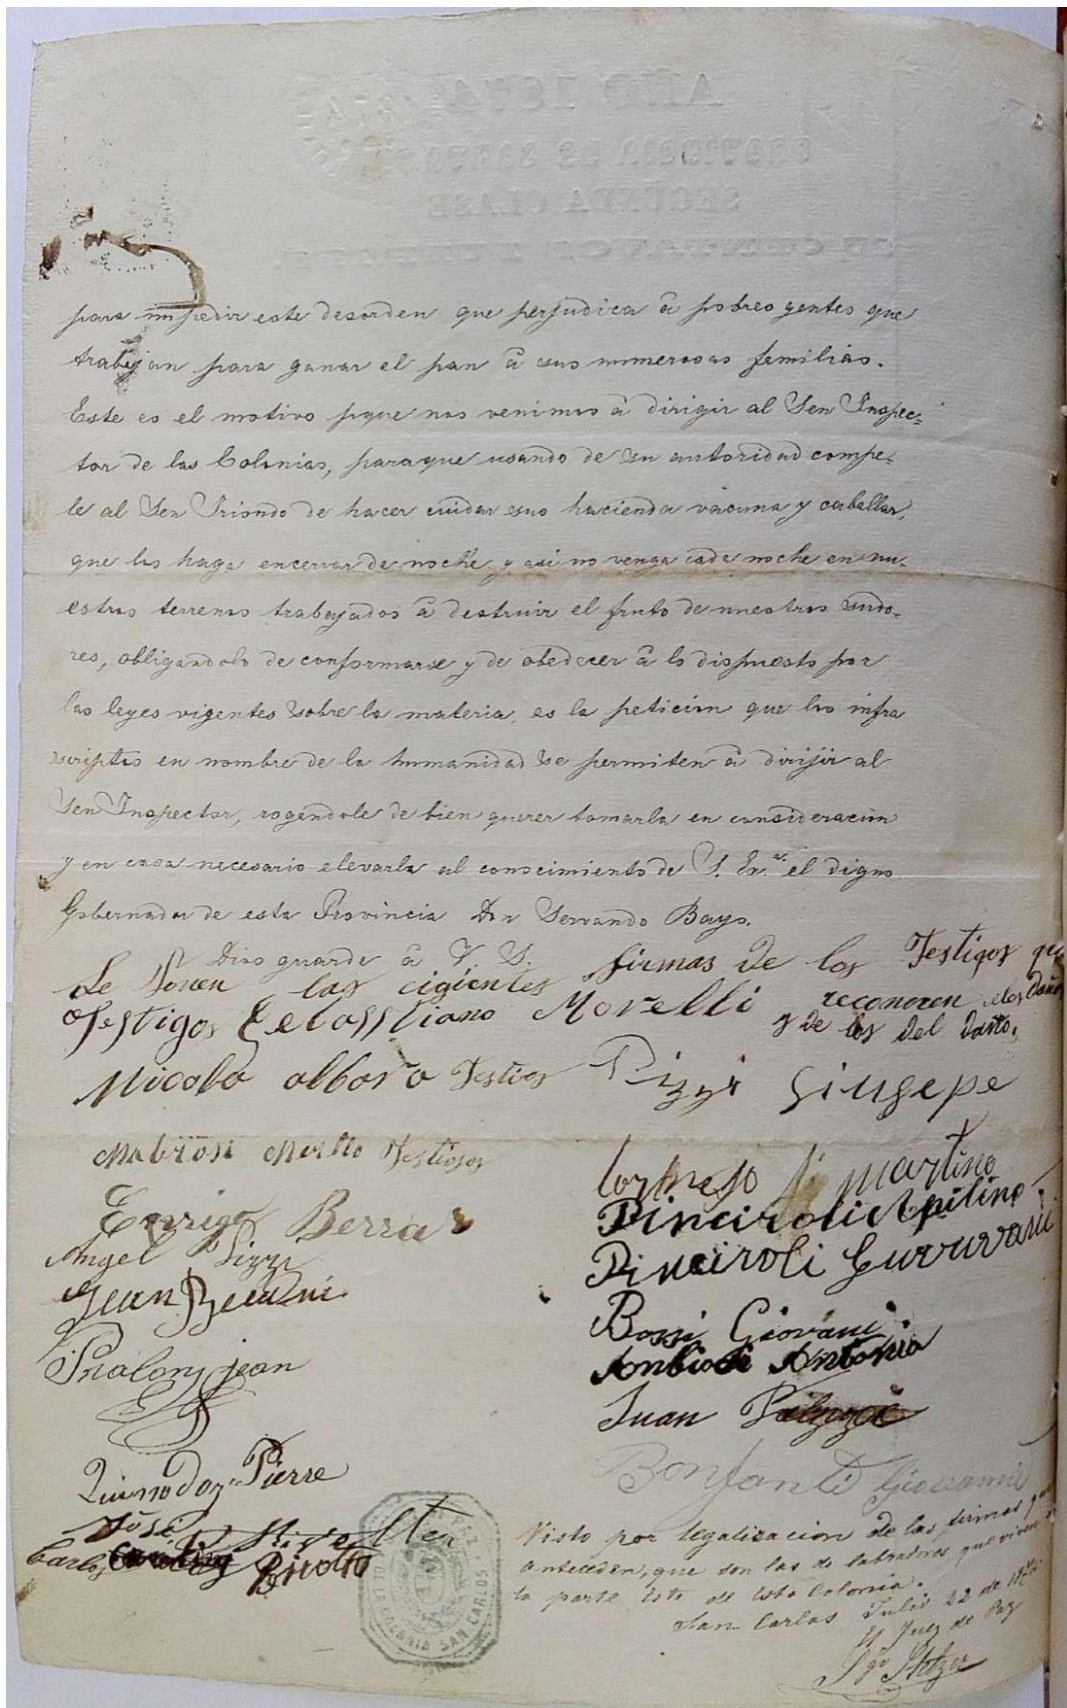 para impedir este desorden que perjudica â pobres gentes que
trabajan para ganar el pan â sus numerosas familias.
Este es el motivo pque nos venimos â dirigir al Señ Inspec-
tor de las Colonias, paraque usando de su autoridad compe-
le al Señ Iriondo de hacer cuidar sus hacienda vacuna y caballar,
que los haga encerrar de noche y asi no venga cada noche en nu-
estros terrenos trabajados â destruir el fruto de nuestros sudo-
res, obligandolo de conformarse y de obedecer â lo dispuesto por
las leyes vigentes sobre la materia, es la peticion que los infra
scriptos en nombre de la humanidad se permiten â dirijir al
Señ Inspector, rogandole de bien querer tomarla en consideracion
y en caso necesario elevarla al conocimiento de S. Ex.ª el digno
Gobernador de esta Provincia Don Servando Bayo.
Dios guarde â V. S.
Se ponen las cigientes firmas de los Testigos que
reconocen los daños
y de los del
Testigos Sebasstiano Morelli
Nicola albora Testigos Pizzi Giusepe
Testigos
martino
Enrigo Berra
Pinciroli
Angel Pizzi
Pinciroli
Jean
Bossi Giovani
Antonio
jean
Juan
Pierre
Bonfanti Giovanni
José
Carlos
SAN CARLOS
Visto por legalizacion de las firmas que
anteceden, que son las de labradores que viven en
la parte Este de esta Colonia.
San Carlos Julio 22 de
El Juez de Paz